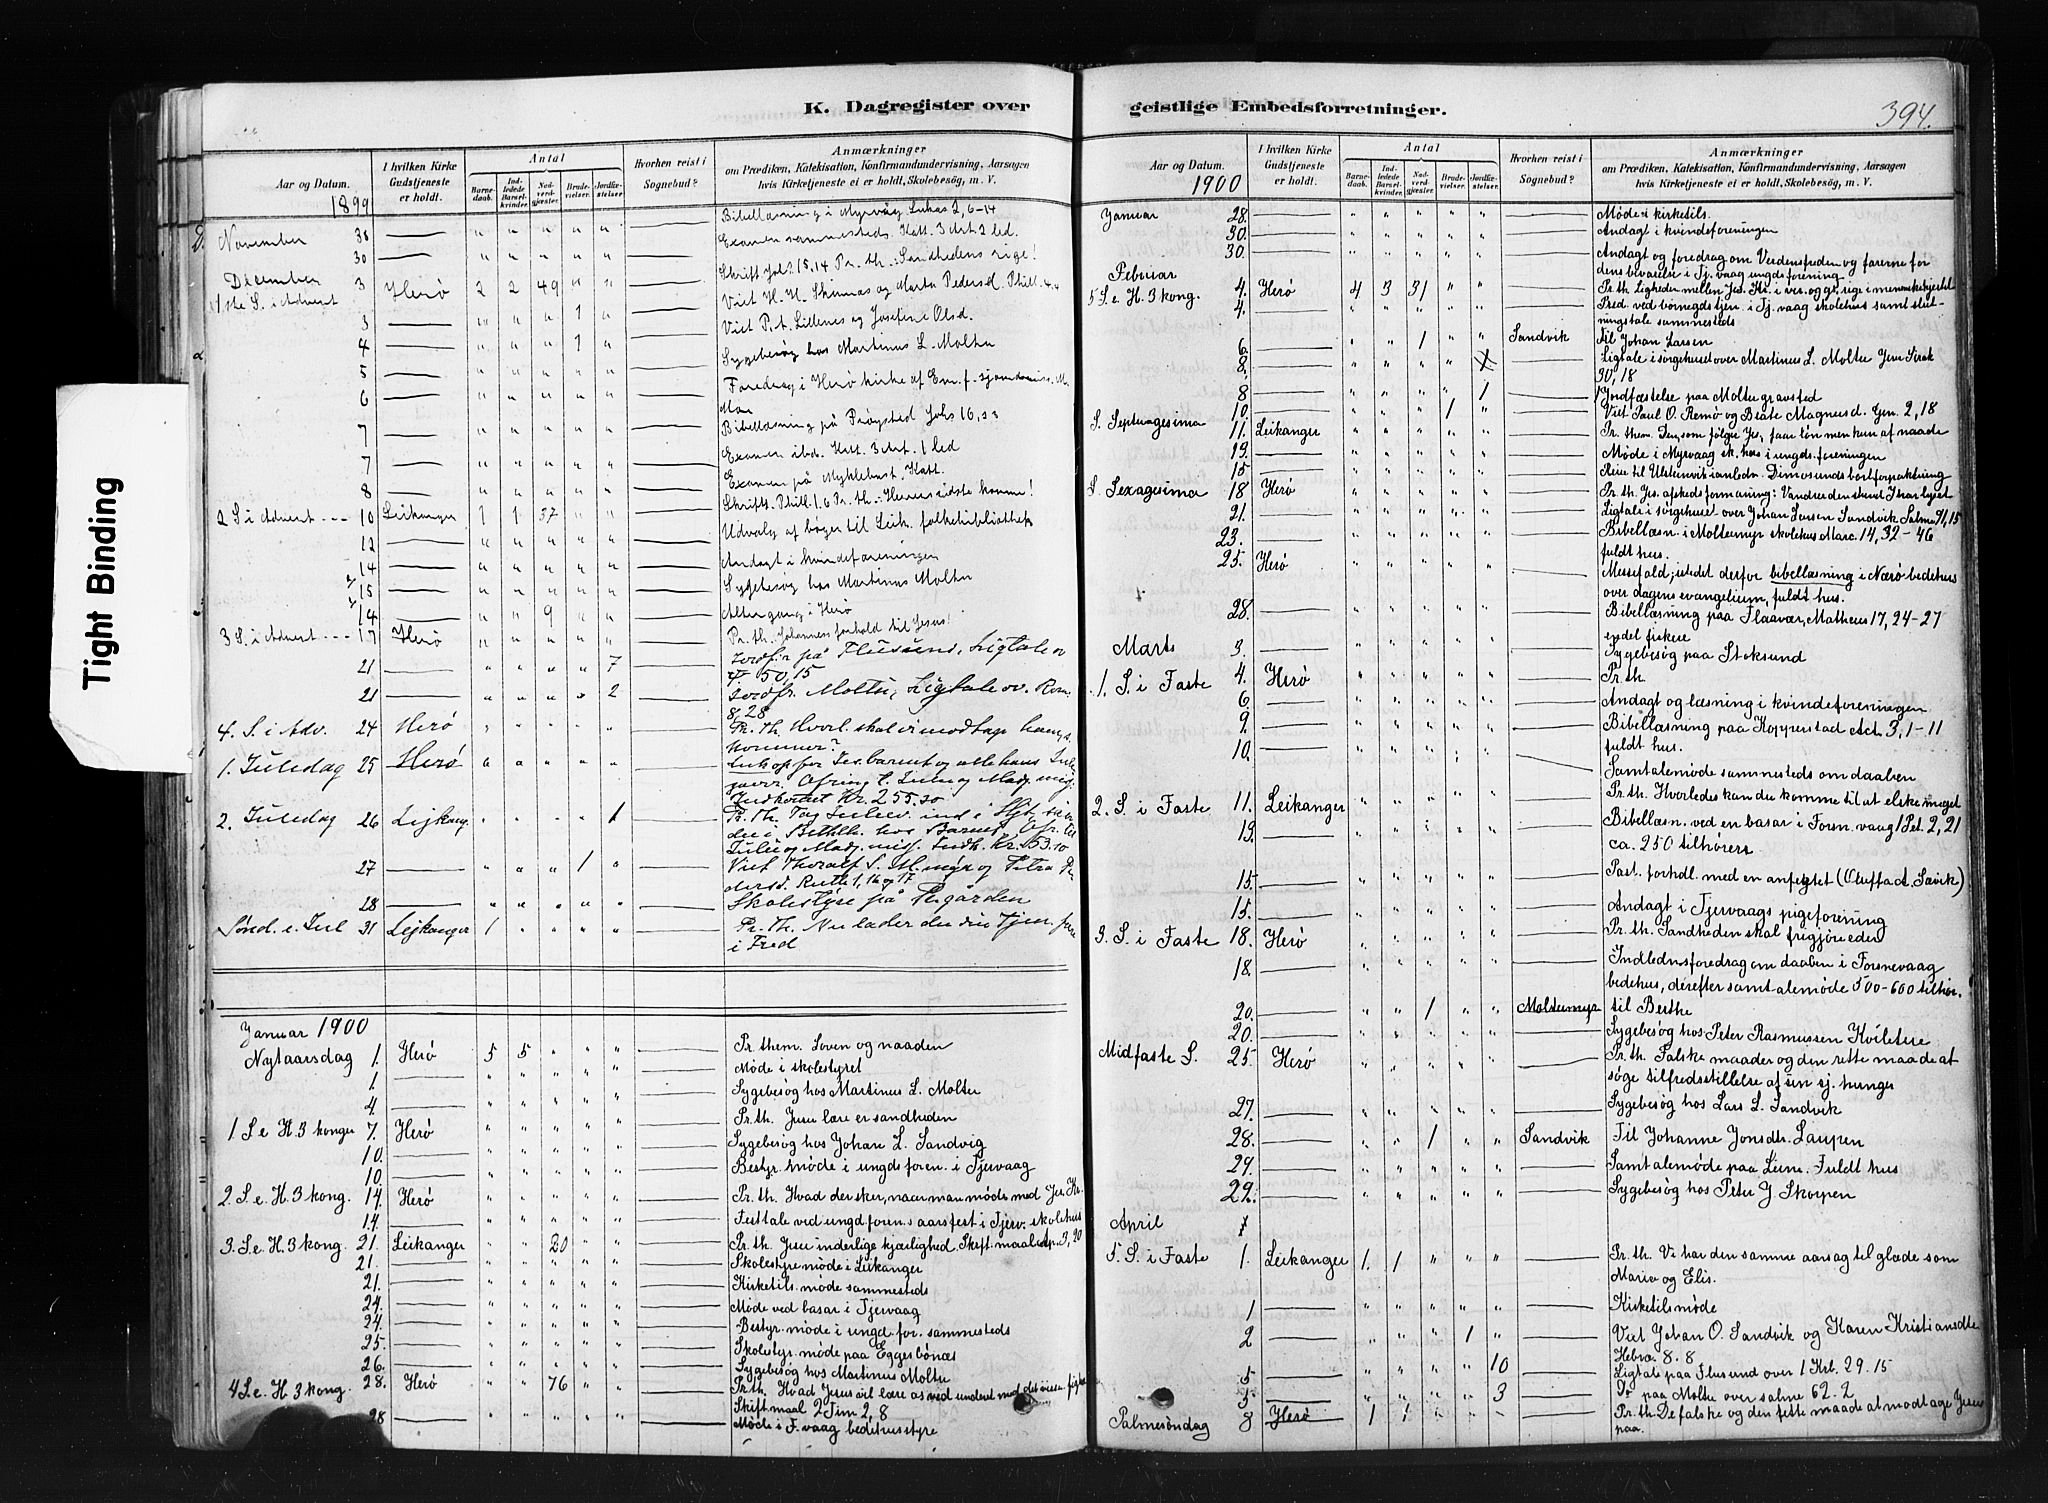 K. Dagregister over
Aar og Datum.
1899
I hvilken Kirke Gudstjeneste er holdt.
Antal
Barnedaab.
Indledede Barselkvinder.
Nadverdgjæster.
Brudevielser.
Jordfæstelser.
Hvorhen reist i Sognebud?
Anmærkninger
om Prædiken, Katekisation, Konfirmandundervisning, Aarsagen
hvis Kirketjeneste ei er holdt, Skolebesøg, m. V.
Bibellæsning i Myrvåg Lukas 2, 6-14
November 30 " " " " " Examen sammesteds. Katt. 3 Art 2 led.
30 " " " " " Skrift Joh 15,14 Pr. th.: Sandhedens rige!
December
1ste S. i Advent 3 Herö 2 2 49 " " Viet H. H. Skinnes og Marta Pedersd. Phill. 4.4
3 " " " 1 " Viet P. t. Lillenes og Josefine Olsd.
4 " " " 1 " Sygebesøg hos Martinus L. Moltu
5 " " " " " Foredrag i Herö kirke af Em. f. sjømandsmiss.
6 " " " " "
7 " " " " " Bibellæsning på Prøysted Johs 16,23
7 " " " " " Examen ibd. Katt. 3 Art. 1 led
8 " " " " " Examen på Myklebust. Katt.
2 S. i Advent 10 Leikanger 1 1 37 " " Skrifts. Phill. 1.6 Pr. th.: Herrens sidste komme!
12 " " " " " Udvalg af bøger til Leik. folkebibliothek
14 " " " " " Andagt i kvindeforeningen
15 " " " " " Sygebesøg hos Martinus Moltu
14 " " 9 " " Altergang i Herö
3 S. i Advent 17 Herö " " " " " Pr. th. Johannes forhold til Jesus!
21 " " " " 7 Jordf:r på Flusund, Ligtale o
50,15
21 " " " " 2 Jordfr. Moltu, Ligtale ov. Rom.
8,28
4. S. i Adv. 24 Herö " " " " " Pr. Th. Hvorl. skal vi modtage ham
kommer?
1. Juledag 25 Herö " " " " " Luk op for Jes.barnet og alle hans Jule
gaver. Ofring t. Lutm og Madg. mis.
Indkomet Kr. 255.30
2. Juledag 26 Lejkang. " " " " 1 Pr. Th. Tag Julev. ind i
i Bethleh. hos Barnet. Ofr. t.
og Madg. miss. Indk. Kr. 153.10
27 " " " 1 " Viet Thoralf S. Myr og Petra Pe
dersd. Ruth 1, 16 og 17
28 " " " " " Skolestyre på Pr.gården
Sønd. e. Jul 31 Lejkanger 1 " " " " Pr. Th. Nu lader du din Tjen. fare
i Fred
Januar 1900
Nytaarsdag 1. Herö 5 5 " " " Pr. them. Loven og naaden
1. " " " " " Møde i skolestyret
4. " " " " " Sygebesøg hos Martinus L. Moltu
1 S. e. H. 3 konger 7. Herö " " " " " Pr. th. Jesu lære er sandheden
10. " " " " " Sygebesøg hos Johan L. Sandvig
10. " " " " " Bestyr. møde i ungdsforen. i Tjervaag
2 S. e. H. 3 kong. 14. Herö " " " " " Pr. th. Hvad der sker, naar man møds med Jes. Kr.
14. " " " " " Festtale ved ungd.foren.s aarsfest i Tjerv. skolehus
3. S. e. H. 3 kong. 21. Leikanger " " 20 " " Pr. th. Jesu inderlige kjærlighed. Skift. maal Ap. 3, 20
21. " " " " " Skolestyre møde i Leikanger
21. " " " " " Kirketils. møde sammesteds
24. " " " " " Møde ved basar i Tjervaag
24. " " " " " Bestyr. møde i ungd. for. sammesteds
25. " " " " " Skolestyr. møde paa Eggesbønes
26. " " " " " Sygebesøg hos Martinus Moltu
4 S. e. H. 3 kong. 28. Herö " " 76 " " Pr. th. Hvad Jesus vil lære os ved underet med det store fiske
Skiftmaal 2 Tim 2, 8
28 " " " " " Møde i F.vaag bedehusstyre
geistlige Embedsforretninger.
394.
Aar og Datum.
1900
I hvilken Kirke Gudstjeneste er holdt.
Antal
Barnedaab.
Indledede Barselkvinder.
Nadverdgjæster.
Brudevielser.
Jordfæstelser.
Hvorhen reist i Sognebud?
Anmærkninger
om Prædiken, Katekisation, Konfirmandundervisning, Aarsagen
hvis Kirketjeneste ei er holdt, Skolebesøg, m. V.
Januar 28. " " " " " Møde i kirketils.
30. " " " " " Andagt i kvindeforeningen
30. " " " " " Andagt og foredrag om Verdensfreden og farerne for
dens bevarelse i Tj. vaag ungdsforening
Februar
5 S. e. H. 3 kong. 4. Herö 4 3 31 " " Pr. th. Ligheden mellem Jes. Kr. i ver. og gs. rige i menneskehjertet
4. " " " " " Præd. ved børnegdstjen. i Tj. vaag skolehus samt slut-
ningstale sammesteds
6. " " 1 " " Sandvik Til Johan Larsen
8. " " " " Ligtale i sørgehuset over Martinus L. Moltu Jesu Sirak
30, 18
8 " " " " 1 Jndfæstelse paa Moltu gravsted
10. " " " 1 " Viet Paul O. Remø og Beate Magnusd. Gen. 2, 18
S. Septuagesima 11. Leikanger " " " " " Pr. them. Den, som følger Jes, faar løn men kun af naade
12. " " " " " Møde i Myrvaag sk. hus i ungds. foreningen
15 " " " " " Reise til Ulstenvik
S. Sexagesima 18 Herö " " " " " Pr. th. Jes. afskedsformaning: Vandrer den stund I har lyset
21. " " " " " Ligtale i sørgehuset over Johan Larsen Sandvik Salme 71, 15
23. " " " " " Bibellæsn. i Moltumyr skolehus Marc. 14, 32-46
fuldt hus.
25. Herö " " " " " Messefald; istedet derfor bibellæsning i Nærø bedehus
over dagens evangelium, fuldt hus.
28. " " " " " Bibellæsning paa Flaavær, Matheus 17, 24-27
endel fiskere
Marts 3. " " " " " Sygebesøg paa Stoksund
1. S. i Faste 4. Herö " " " " " Pr. th.
6. " " " " " Andagt og læsning i kvindeforeningen
9. " " " " " Bibellæsning paa Kopperstad Act. 3, 1-11
fuldt hus.
10. " " " " " Samtalemøde sammesteds om daaben
2. S. i Faste 11. Leikanger " " " " " Pr. th. Hvorledes kan du komme til at elske meget
13. " " " " " Bibellæsn. ved en basar i Forsn. vaag 1 Pet. 2, 21
ca. 250 tilhørere
15. " " " " " Past. forhdl. med en anfegtet (Oluffa A. Sævik)
15. " " " " " Andagt i Tjervaags pigeforening
3. S. i Faste 18. Herö " " " " " Pr. th. Sandheden skal frigjøre eder
18. " " " " " Indlednsforedrag om daaben i Forsnevaag
bedehus, derefter samtalemøde 500-600 tilhør.
20. " " 1 " " Moltumyr til Berthe
20. " " " " " Sygebesøg hos Peter Rasmussen Kvilstre
Midfaste S. 25. Herö " " " " " Pr. th. Falske maader og den rette maade at
søge tilfredsstillelse af sin sj. hunger
27. " " " " " Sygebesøg hos Lars L. Sandvik
28. " " 1 " " Sandvik Til Johanne Jonsdtr. Laupen
29. " " " " " Samtalemøde paa Leine. Fuldt hus
29. " " " " " Sygebesøg hos Peter J. Skorpen
April
5. S. i Faste 1. Leikanger 1. 1 " " " Pr. th. Vi har den samme aarsag til glæde som
Maria og Elis.
1 " " " " " Kirketilsmøde
2 " " " 1 " Viet Johan O. Sandvik og Karen Kristiansdtr
Hebræ. 8. 8
5 " " " " 10 Ligtale paa Flusund over 1 Krb. 29. 15
5. " " " " 3 Do paa Moltu over salme 62. 2
Palmesøndag 8 Herö 1 1 " " " Pr. th. De falske og den rette maade at modtage Jesus
paa.
Tight Binding